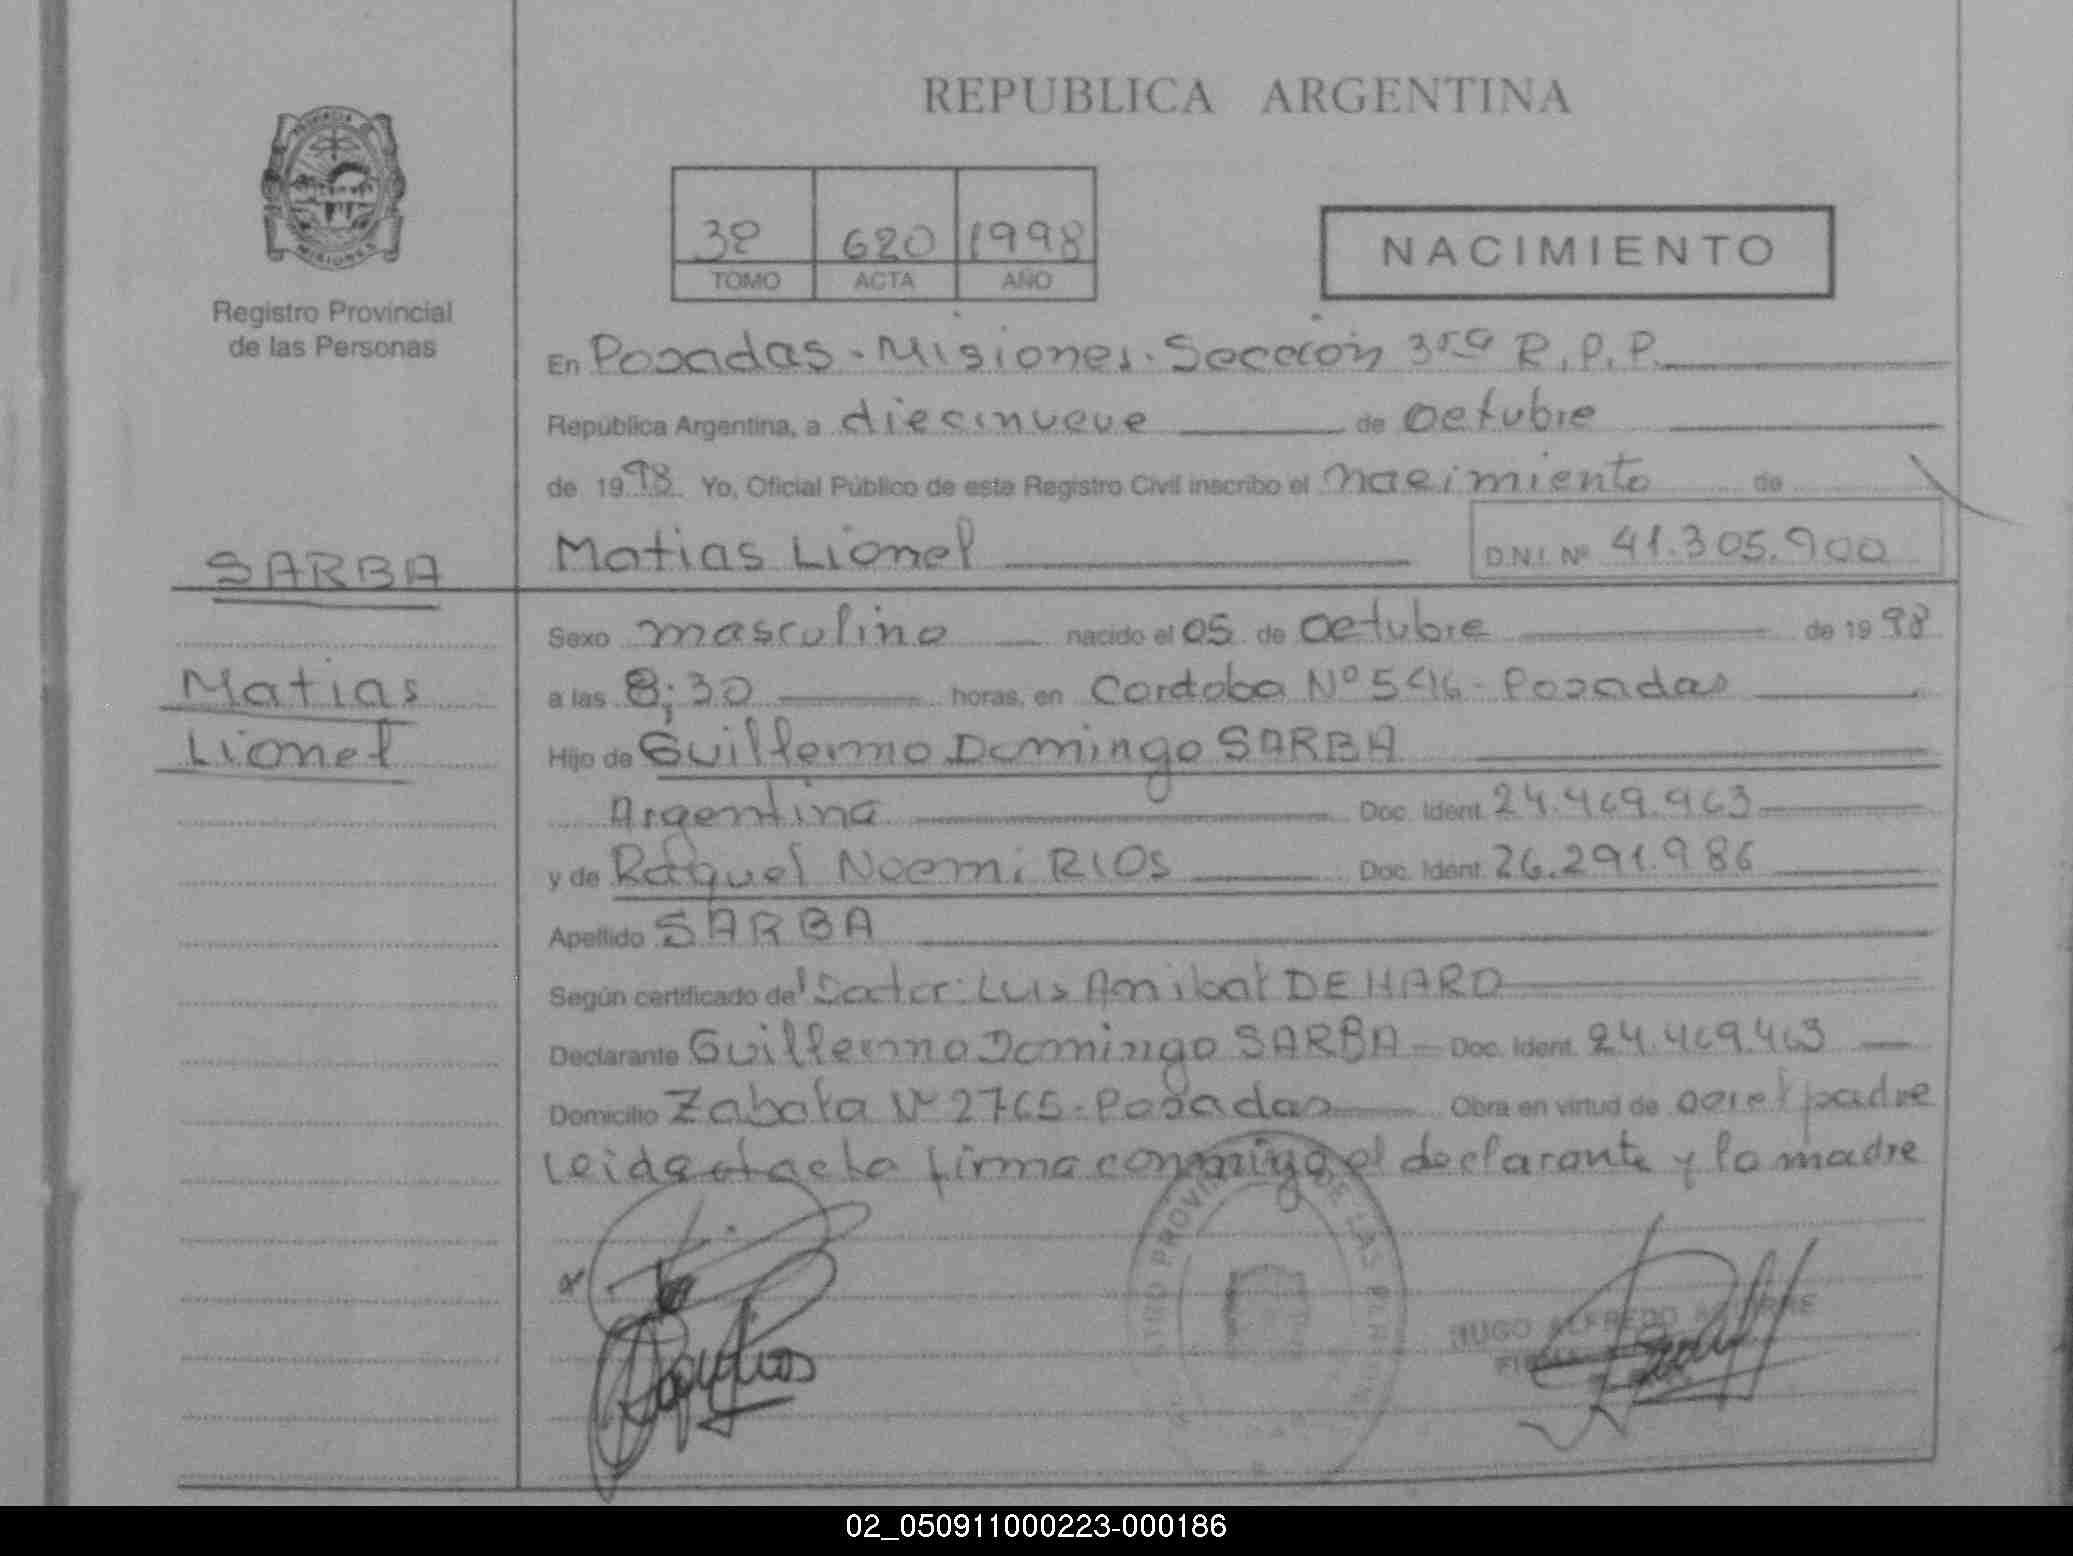 REPUBLICA ARGENTINA
PROVINCIA
MISIONES
Registro Provincial
de las Personas
3º 620 1998
TOMO ACTA AÑO
NACIMIENTO
En Posadas - Misiones - Sección 3ra R.P.P.
República Argentina, a diecinueve de octubre
de 1998 Yo, Oficial Público de este Registro Civil inscribo el nacimiento de
SARBA
Matias Lionel D.N.I. Nº 41.305.900
Sexo masculino nacido el 05 de octubre de 1998
Matias
a las 8:30 horas, en Cordoba Nº 546 - Posadas
Lionel
Hijo de Guillermo Domingo SARBA
Argentina Doc. Ident. 24.469.463
y de Raquel Noemi RIOS Doc. Ident. 26.291.986
Apellido SARBA
Según certificado del Doctor: Luis Anibal DE HARO
Declarante Guillermo Domingo SARBA Doc. Ident. 24.469.463
Domicilio Zabala Nº 2765 - Posadas Obra en virtud de ser el padre
Leida el acta firma conmigo el declarante y la madre
HUGO ALFREDO
02_050911000223-000186